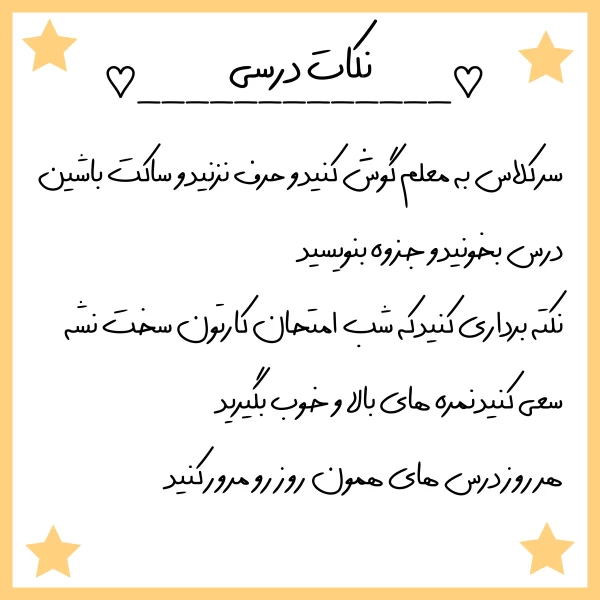 نکات درسی
سر کلاس به معلم گوش کنید و حرف نزنید و ساکت باشین
درس بخونید و جزوه بنویسید
نکته برداری کنید که شب امتحان کارتون سخت نشه
سعی کنید نمره های بالا و خوب بگیرید
هر روز درس های همون روز رو مرور کنید